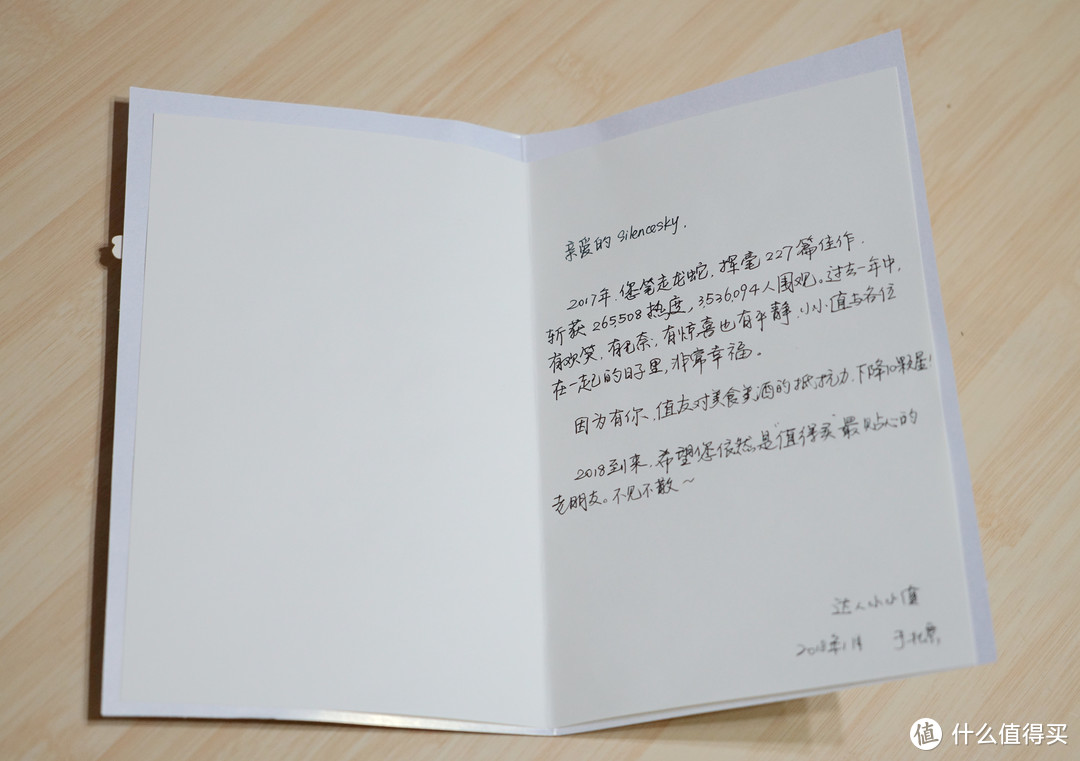 亲爱的 Silencesky.
2017年,您笔走龙蛇,挥毫227篇佳作.
斩获 265,508 热度,3,536,094人围观。过去一年中,
有欢笑,有无奈,有惊喜也有平静,小小值与各位
在一起的日子里,非常幸福。
因为有你,值友对美食美酒的抵抗力,下降10颗星!
2018到来,希望您依然是“值得买”最贴心的
老朋友。不见不散~
达人小小值
2018年1月 于北京
值 什么值得买